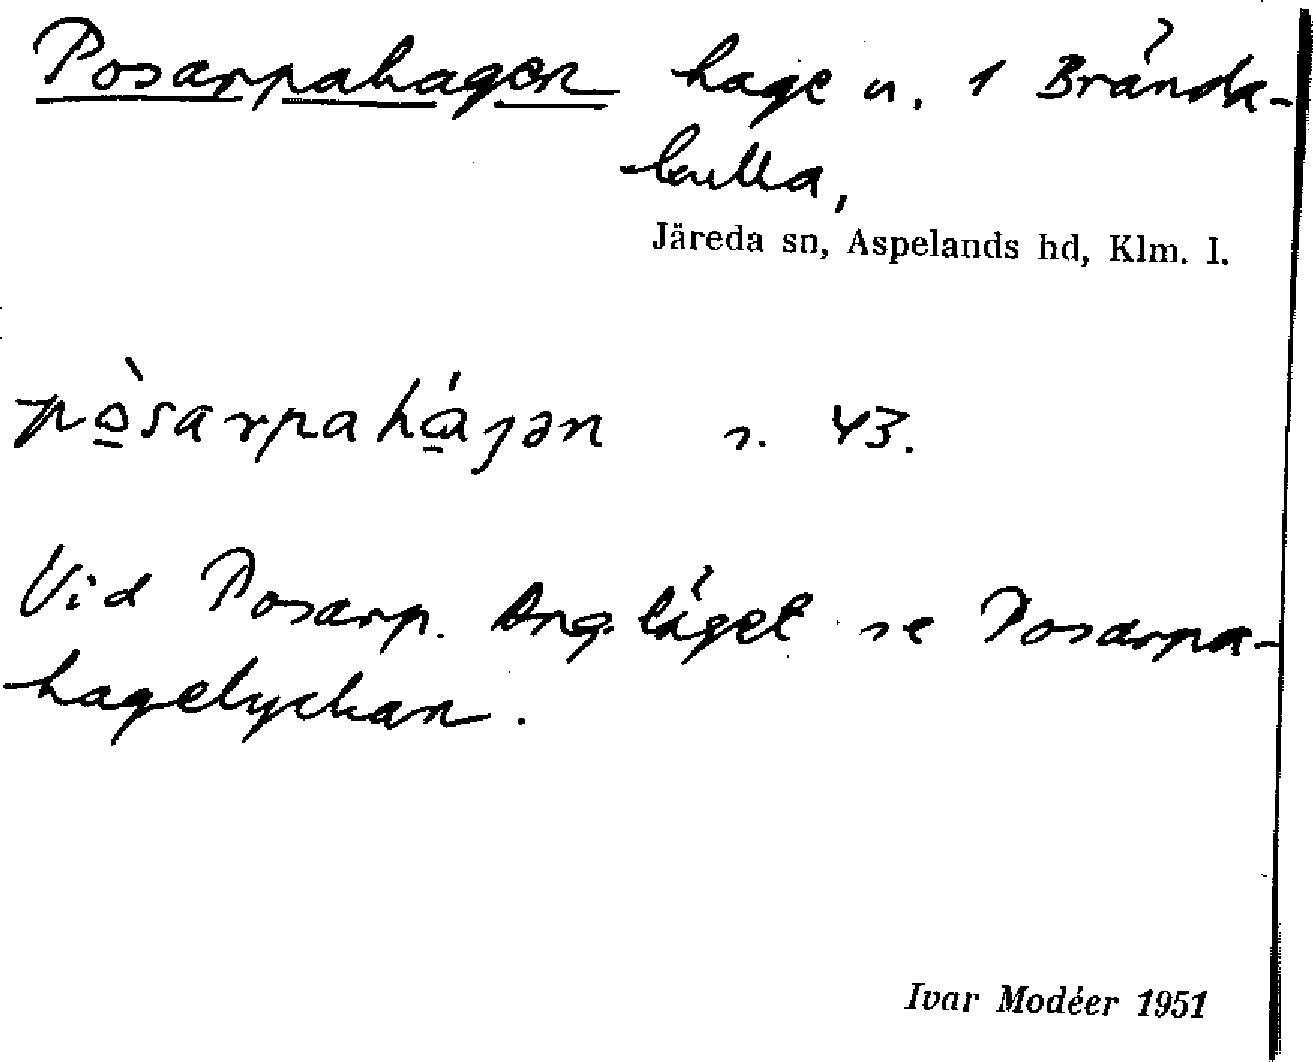 Posarpahagen hage u. 1 Brända-
kulla,
Järeda sn, Aspelands hd, Klm. l.
pòsarpahájən s. 43.
Vid Posarp. Ang. läget se Posarpa-
hagelyckan.
Ivar Modéer 1951